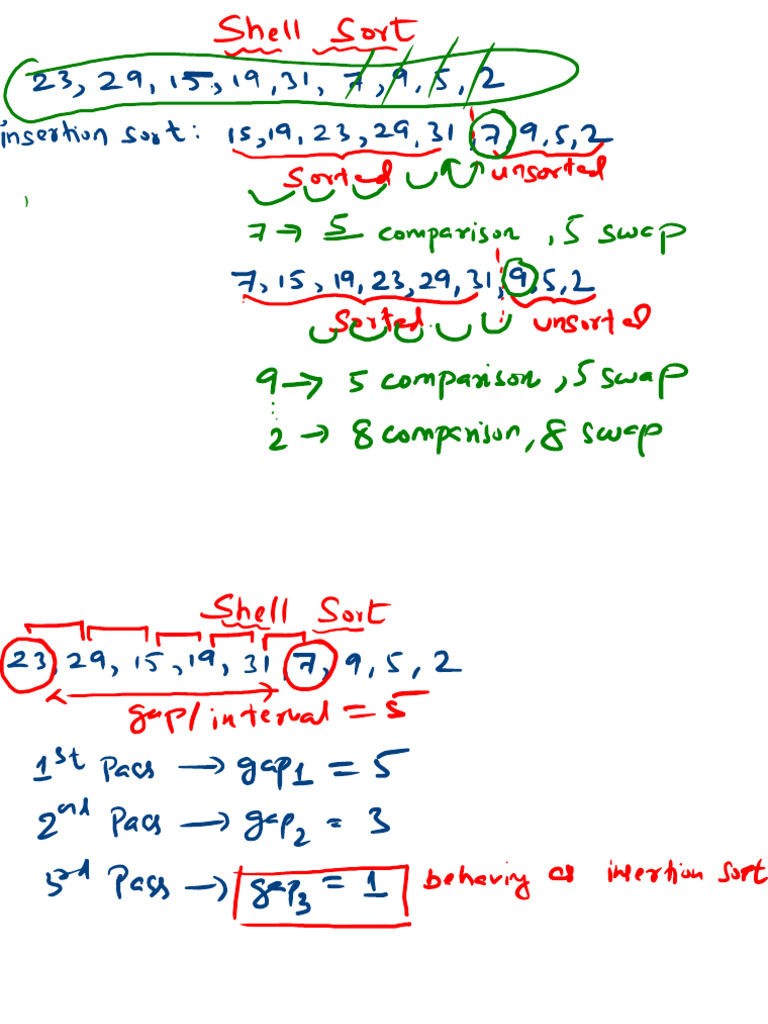 Shell Sort
23, 29, 15, 19, 31, 7, 9, 5, 2
insertion sort: 15, 19, 23, 29, 31, 7, 9, 5, 2
Sorted unsorted
7 → 5 comparison, 5 swap
7, 15, 19, 23, 29, 31, 9, 5, 2
Sorted unsorted
9 → 5 comparison, 5 swap
2 → 8 comparison, 8 swap
Shell Sort
23, 29, 15, 19, 31, 7, 9, 5, 2
gap/interval = 5
1st Pass → gap1 = 5
2nd Pass → gap2 = 3
3rd Pass → gap3 = 1 behaving as insertion sort